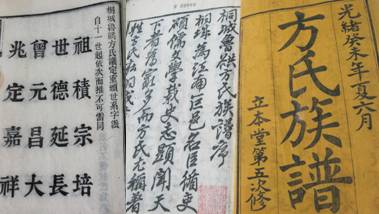 光緒癸未年夏六月
方氏族譜
立本堂第五次修
桐城魯谼方氏族譜序
桐城為江南巨邑名臣循吏
碩儒學載史志顯聞天
下者居最多而方氏尤稱著
桐城魯谼方氏議定重頒世系字派
自十一世起依次而推不可雷同
祖積宗培
世德延長
曾元昌大
兆定嘉祥